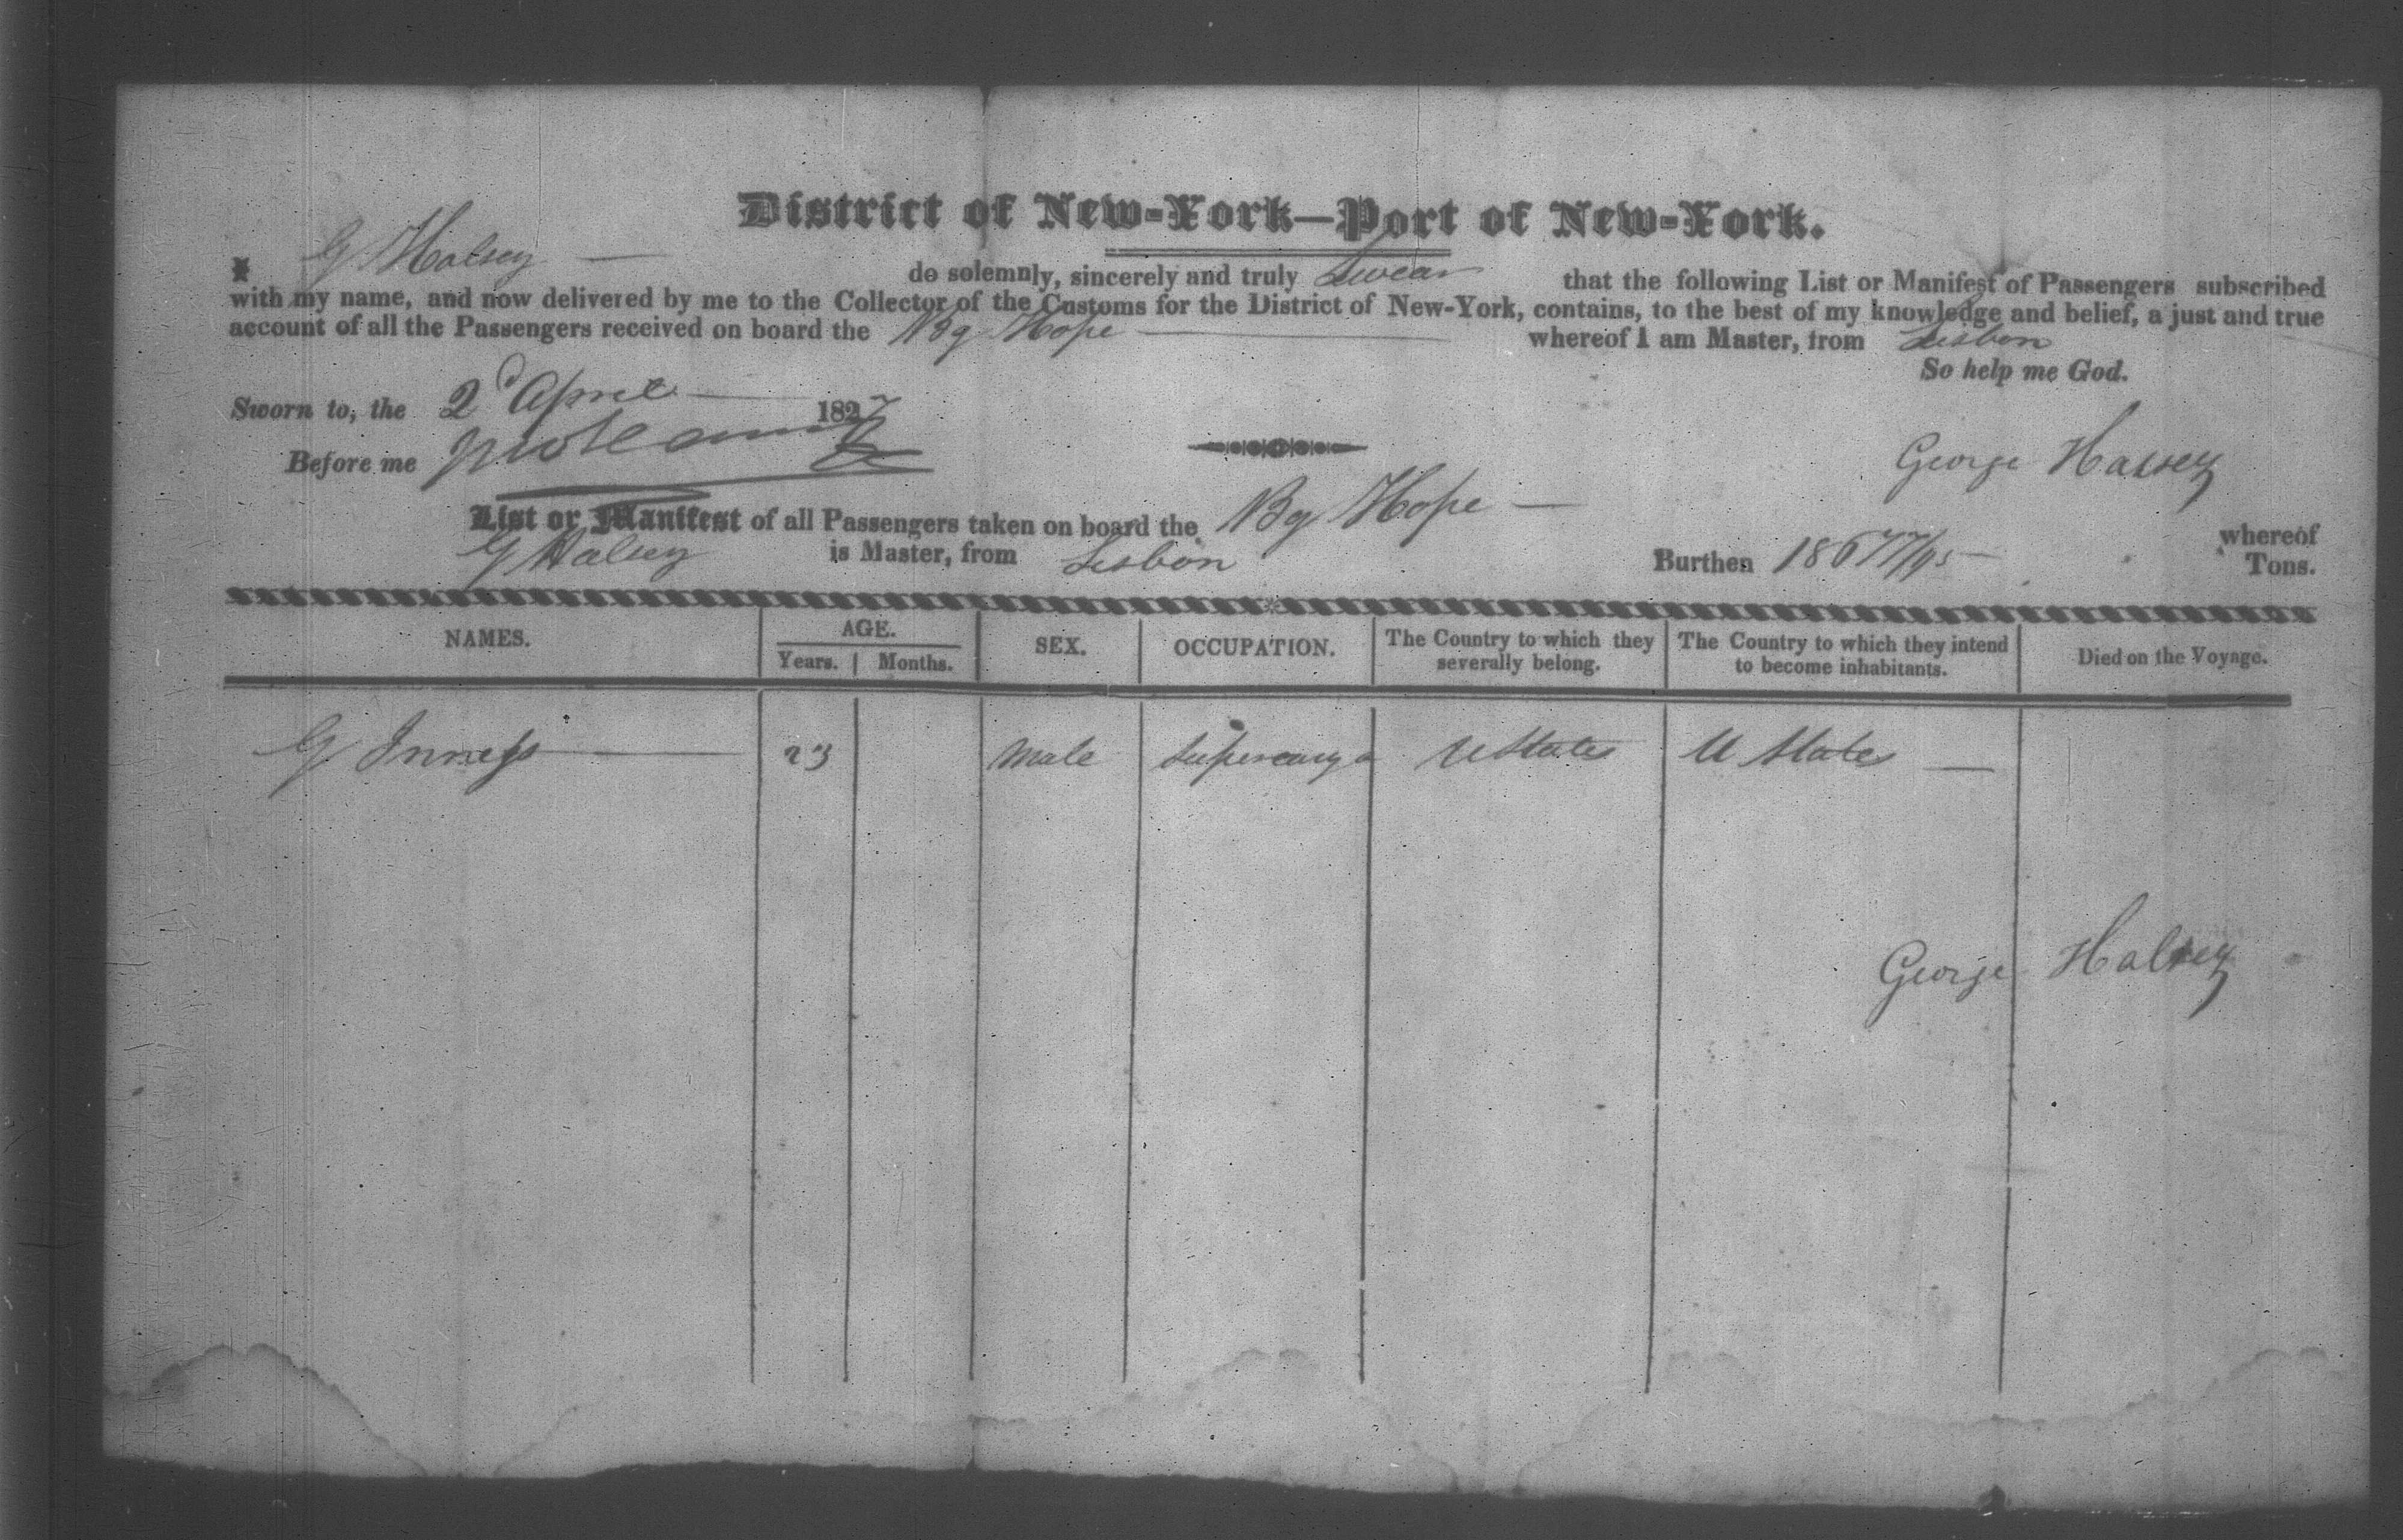 District of New-York—Port of New-York.
I G Halsey — do solemnly, sincerely and truly Swear that the following List or Manifest of Passengers subscribed
with my name, and now delivered by me to the Collector of the Customs for the District of New-York, contains, to the best of my knowledge and belief, a just and true
account of all the Passengers received on board the Bg Hope — whereof I am Master, from Lisbon
So help me God.
Sworn to, the 2d April — 1827
Before me
George Halsey
List or Manifest of all Passengers taken on board the Bg Hope — whereof
G Halsey is Master, from Lisbon Burthen 186 77/95 — Tons.
NAMES. AGE. SEX. OCCUPATION. The Country to which they severally belong. The Country to which they intend to become inhabitants. Died on the Voyage.
Years. Months.
G Inness — 23 Male Supercargo U States U States —
George Halsey